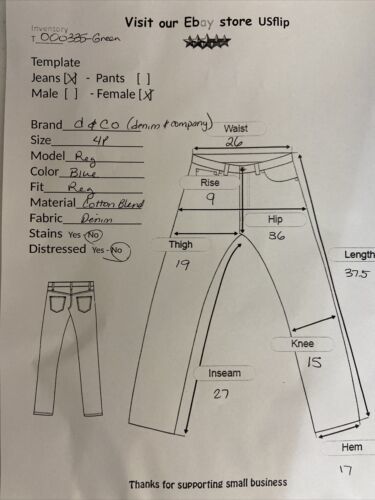 Visit our Ebay store USflip
Inventory
T 000335-Green
Template
Jeans [X] - Pants [ ]
Male [ ] - Female [X]
Brand d & Co (denim & company)
Size 4P
Model Reg
Color Blue
Fit Reg
Material Cotton Blend
Fabric Denim
Stains Yes - No
Distressed Yes - No
Waist
26
Rise
9
Hip
36
Thigh
19
Length
37.5
Knee
15
Inseam
27
Hem
17
Thanks for supporting small business